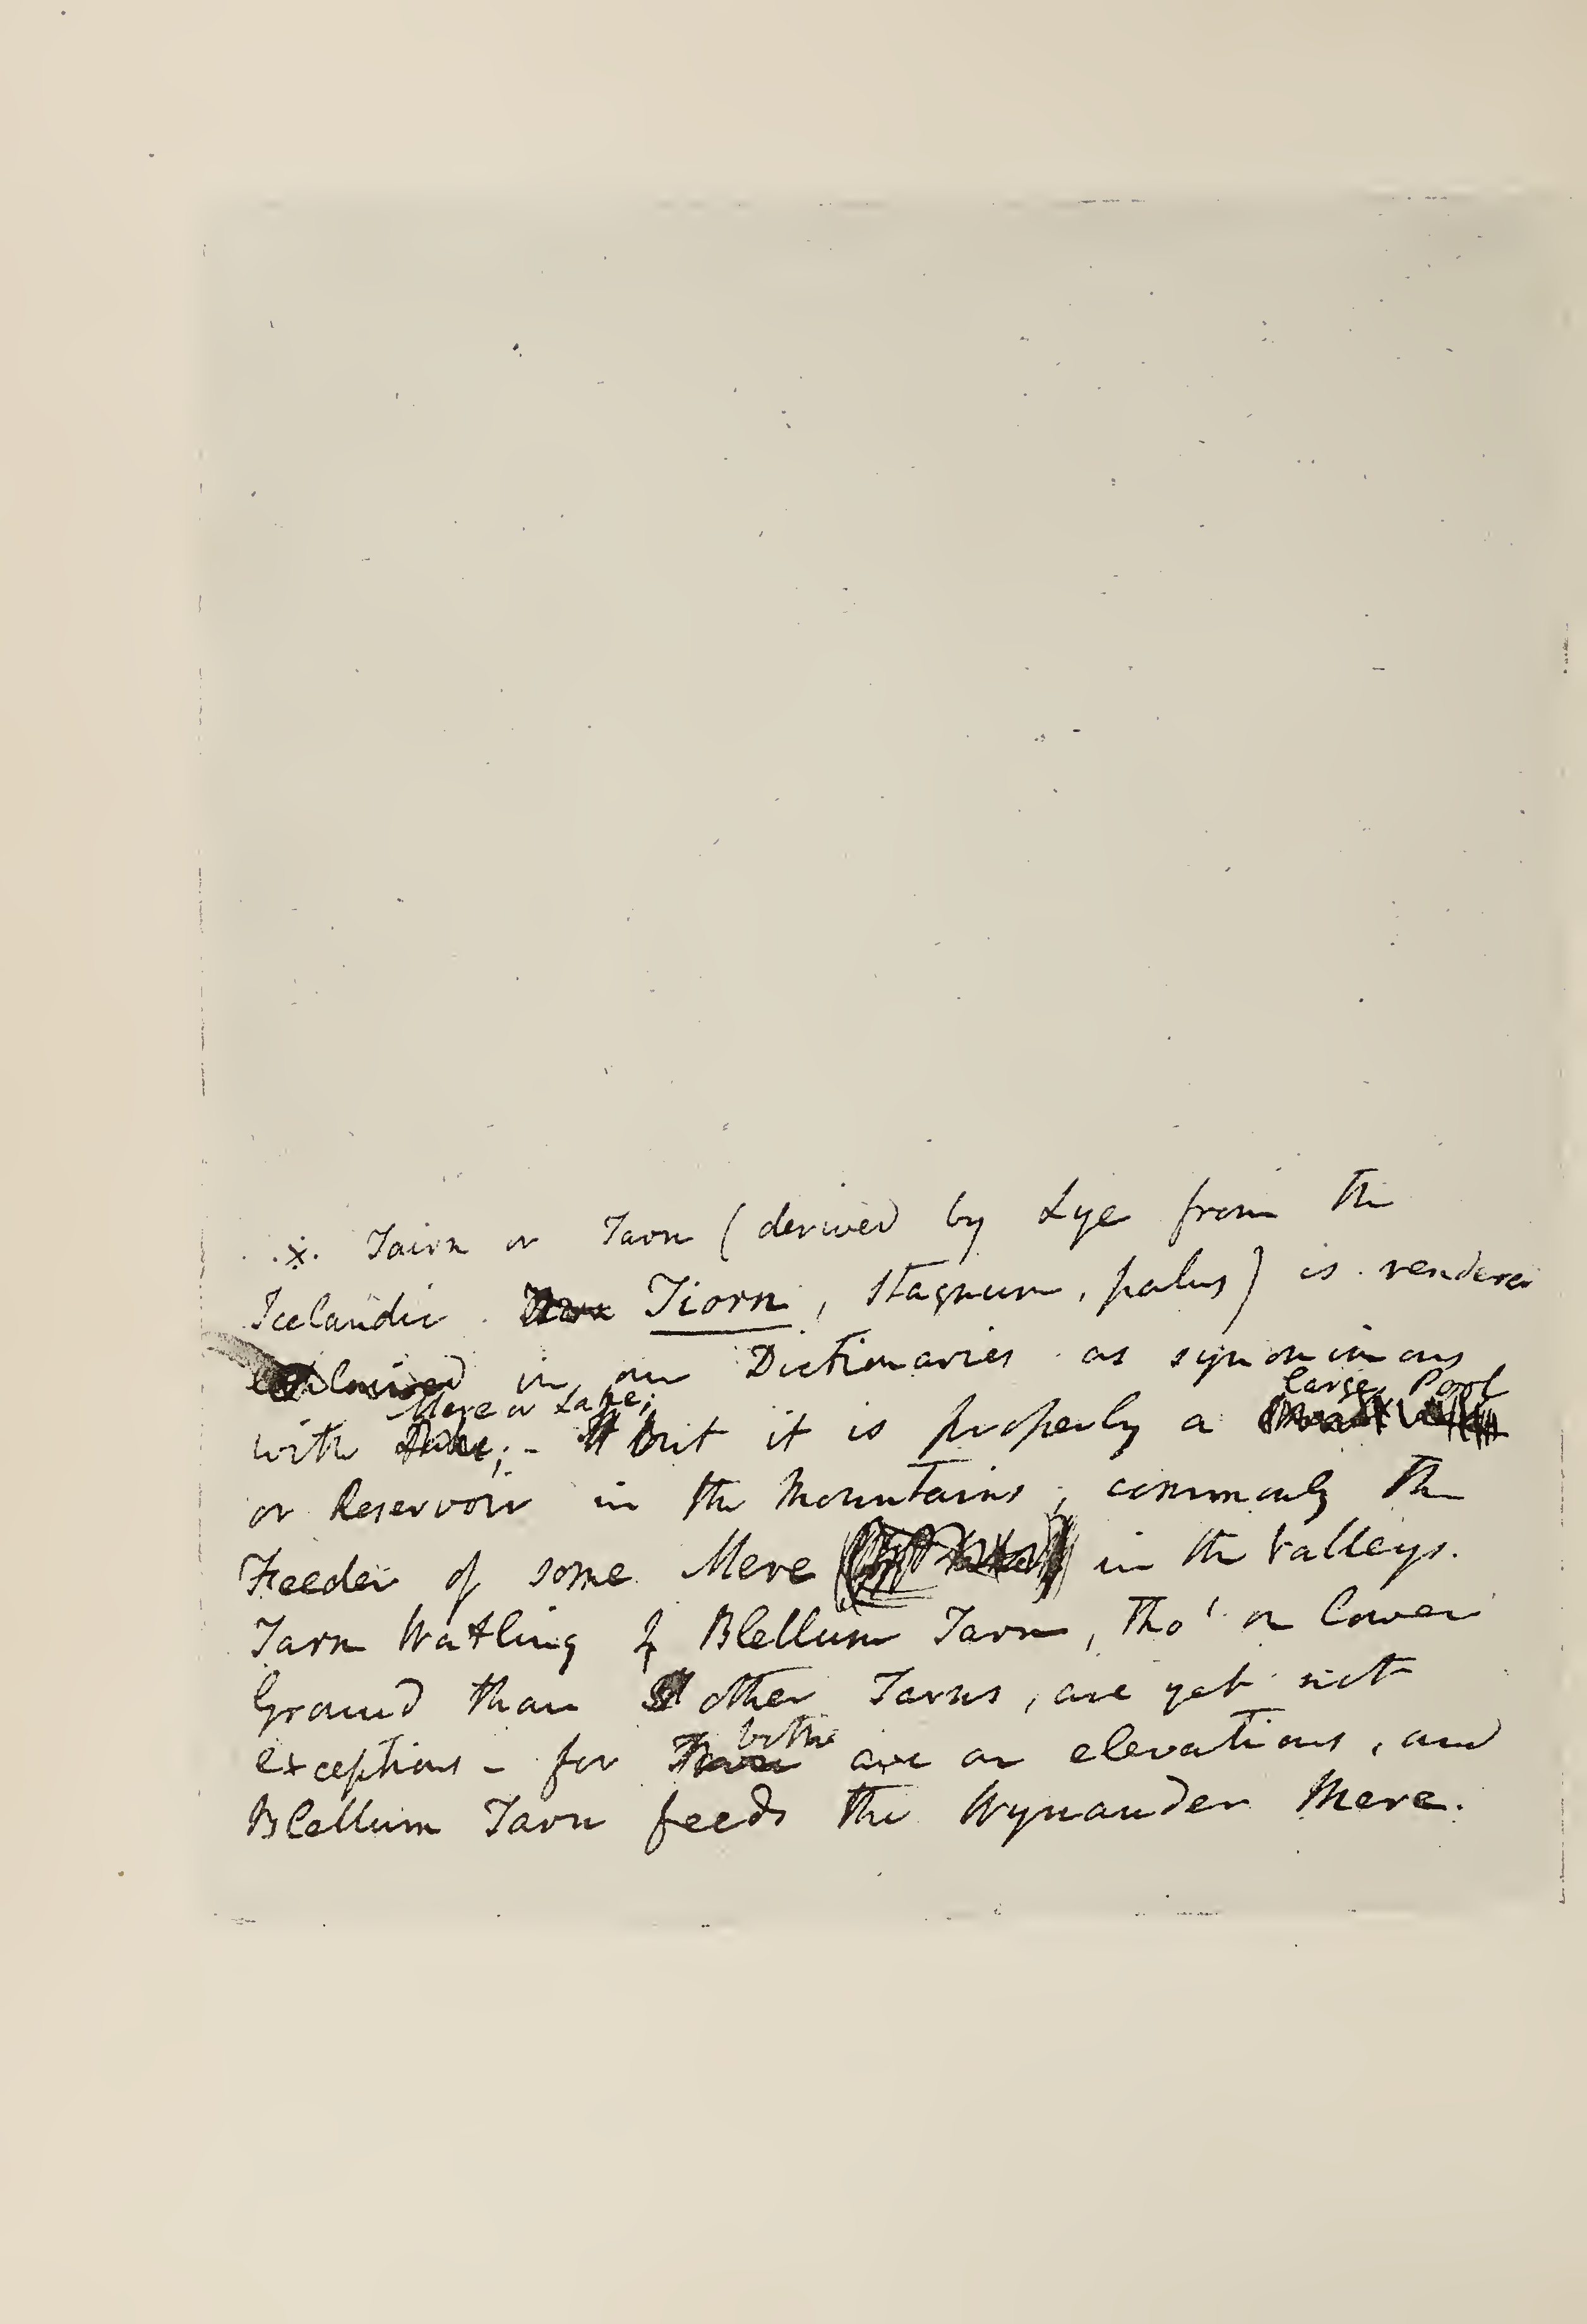 .x. Tairn or Tarn (derived by Lye from the
Icelandic Tiorn, stagnum, palus) is rendered
explained in our Dictionaries as synonimous
Mere or Lake; large Pool
with - But it is properly a
or Reservoir in the Mountains, commonly the
Feeder of some Mere in the Valleys.
Tarn Watling & Blellum Tarn, tho' on lower
Ground than other Tarns, are yet not
both
exceptions - for are on elevations, and
Blellum Tarn feeds the Wynander Mere.